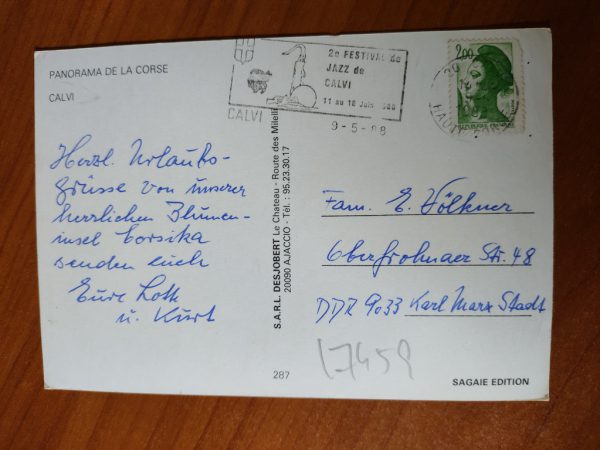 PANORAMA DE LA CORSE
CALVI
2e FESTIVAL de
JAZZ de
CALVI
11 au 18 Juin
CALVI
9-5-88
2,00
Herzl. Urlaubs-
grüsse von unserer
herrlichen Blumen-
insel Corsika
senden euch
Eure Loth
u. Kurt
S.A.R.L. DESJOBERT Le Chateau - Route des Milelli
20090 AJACCIO - Tél. : 95.23.30.17
Fam. E. Völkner
Oberfrohnaer Str. 48
DDR 9033 Karl Marx Stadt
17459
287
SAGAIE EDITION